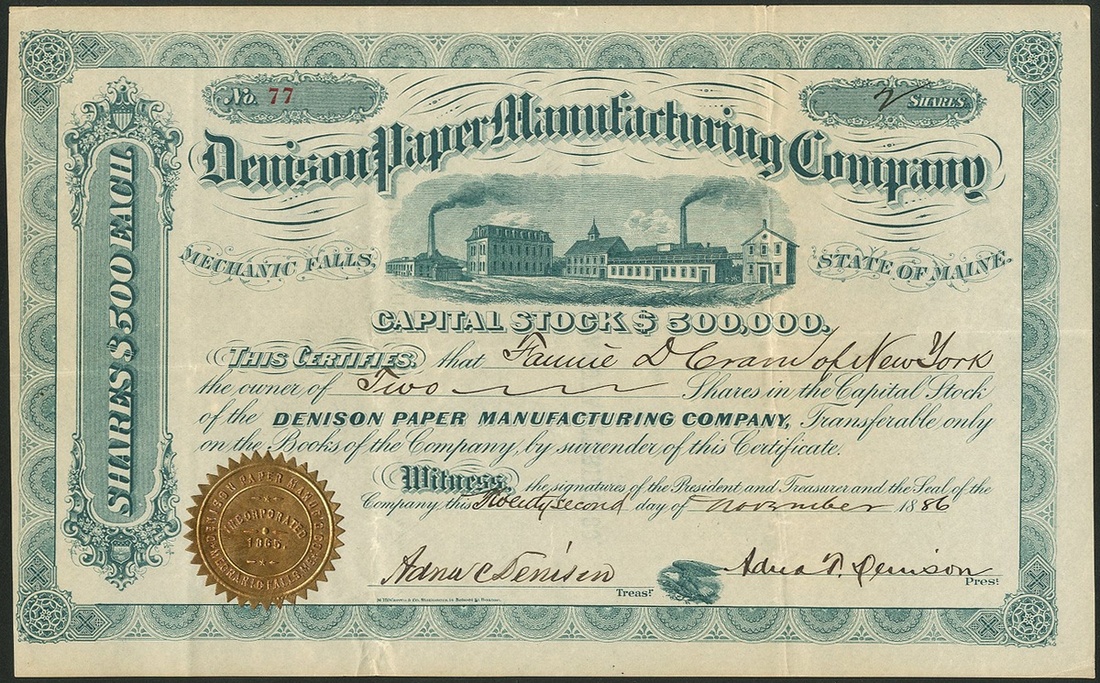 No. 77
2 SHARES.
Denison Paper Manufacturing Company
MECHANIC FALLS.
STATE OF MAINE.
SHARES $500 EACH
CAPITAL STOCK $ 500,000.
THIS CERTIFIES. that Fannie D Cram of New York
the owner of Two Shares in the Capital Stock
of the DENISON PAPER MANUFACTURING COMPANY, Transferable only
on the Books of the Company, by surrender of this Certificate.
Witness. the signatures of the President and Treasurer and the Seal of the
Company, this Twenty second day of November 1886
DENISON PAPER MANUF'G CO.
INCORPORATED
1865.
MECHANIC FALLS, ME.
Adna C Denison
Treasr
Adna T. Denison
Prest